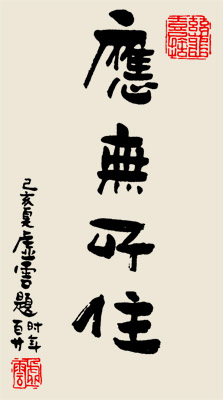 應無所住
己亥夏虛雲題
時年
百廿